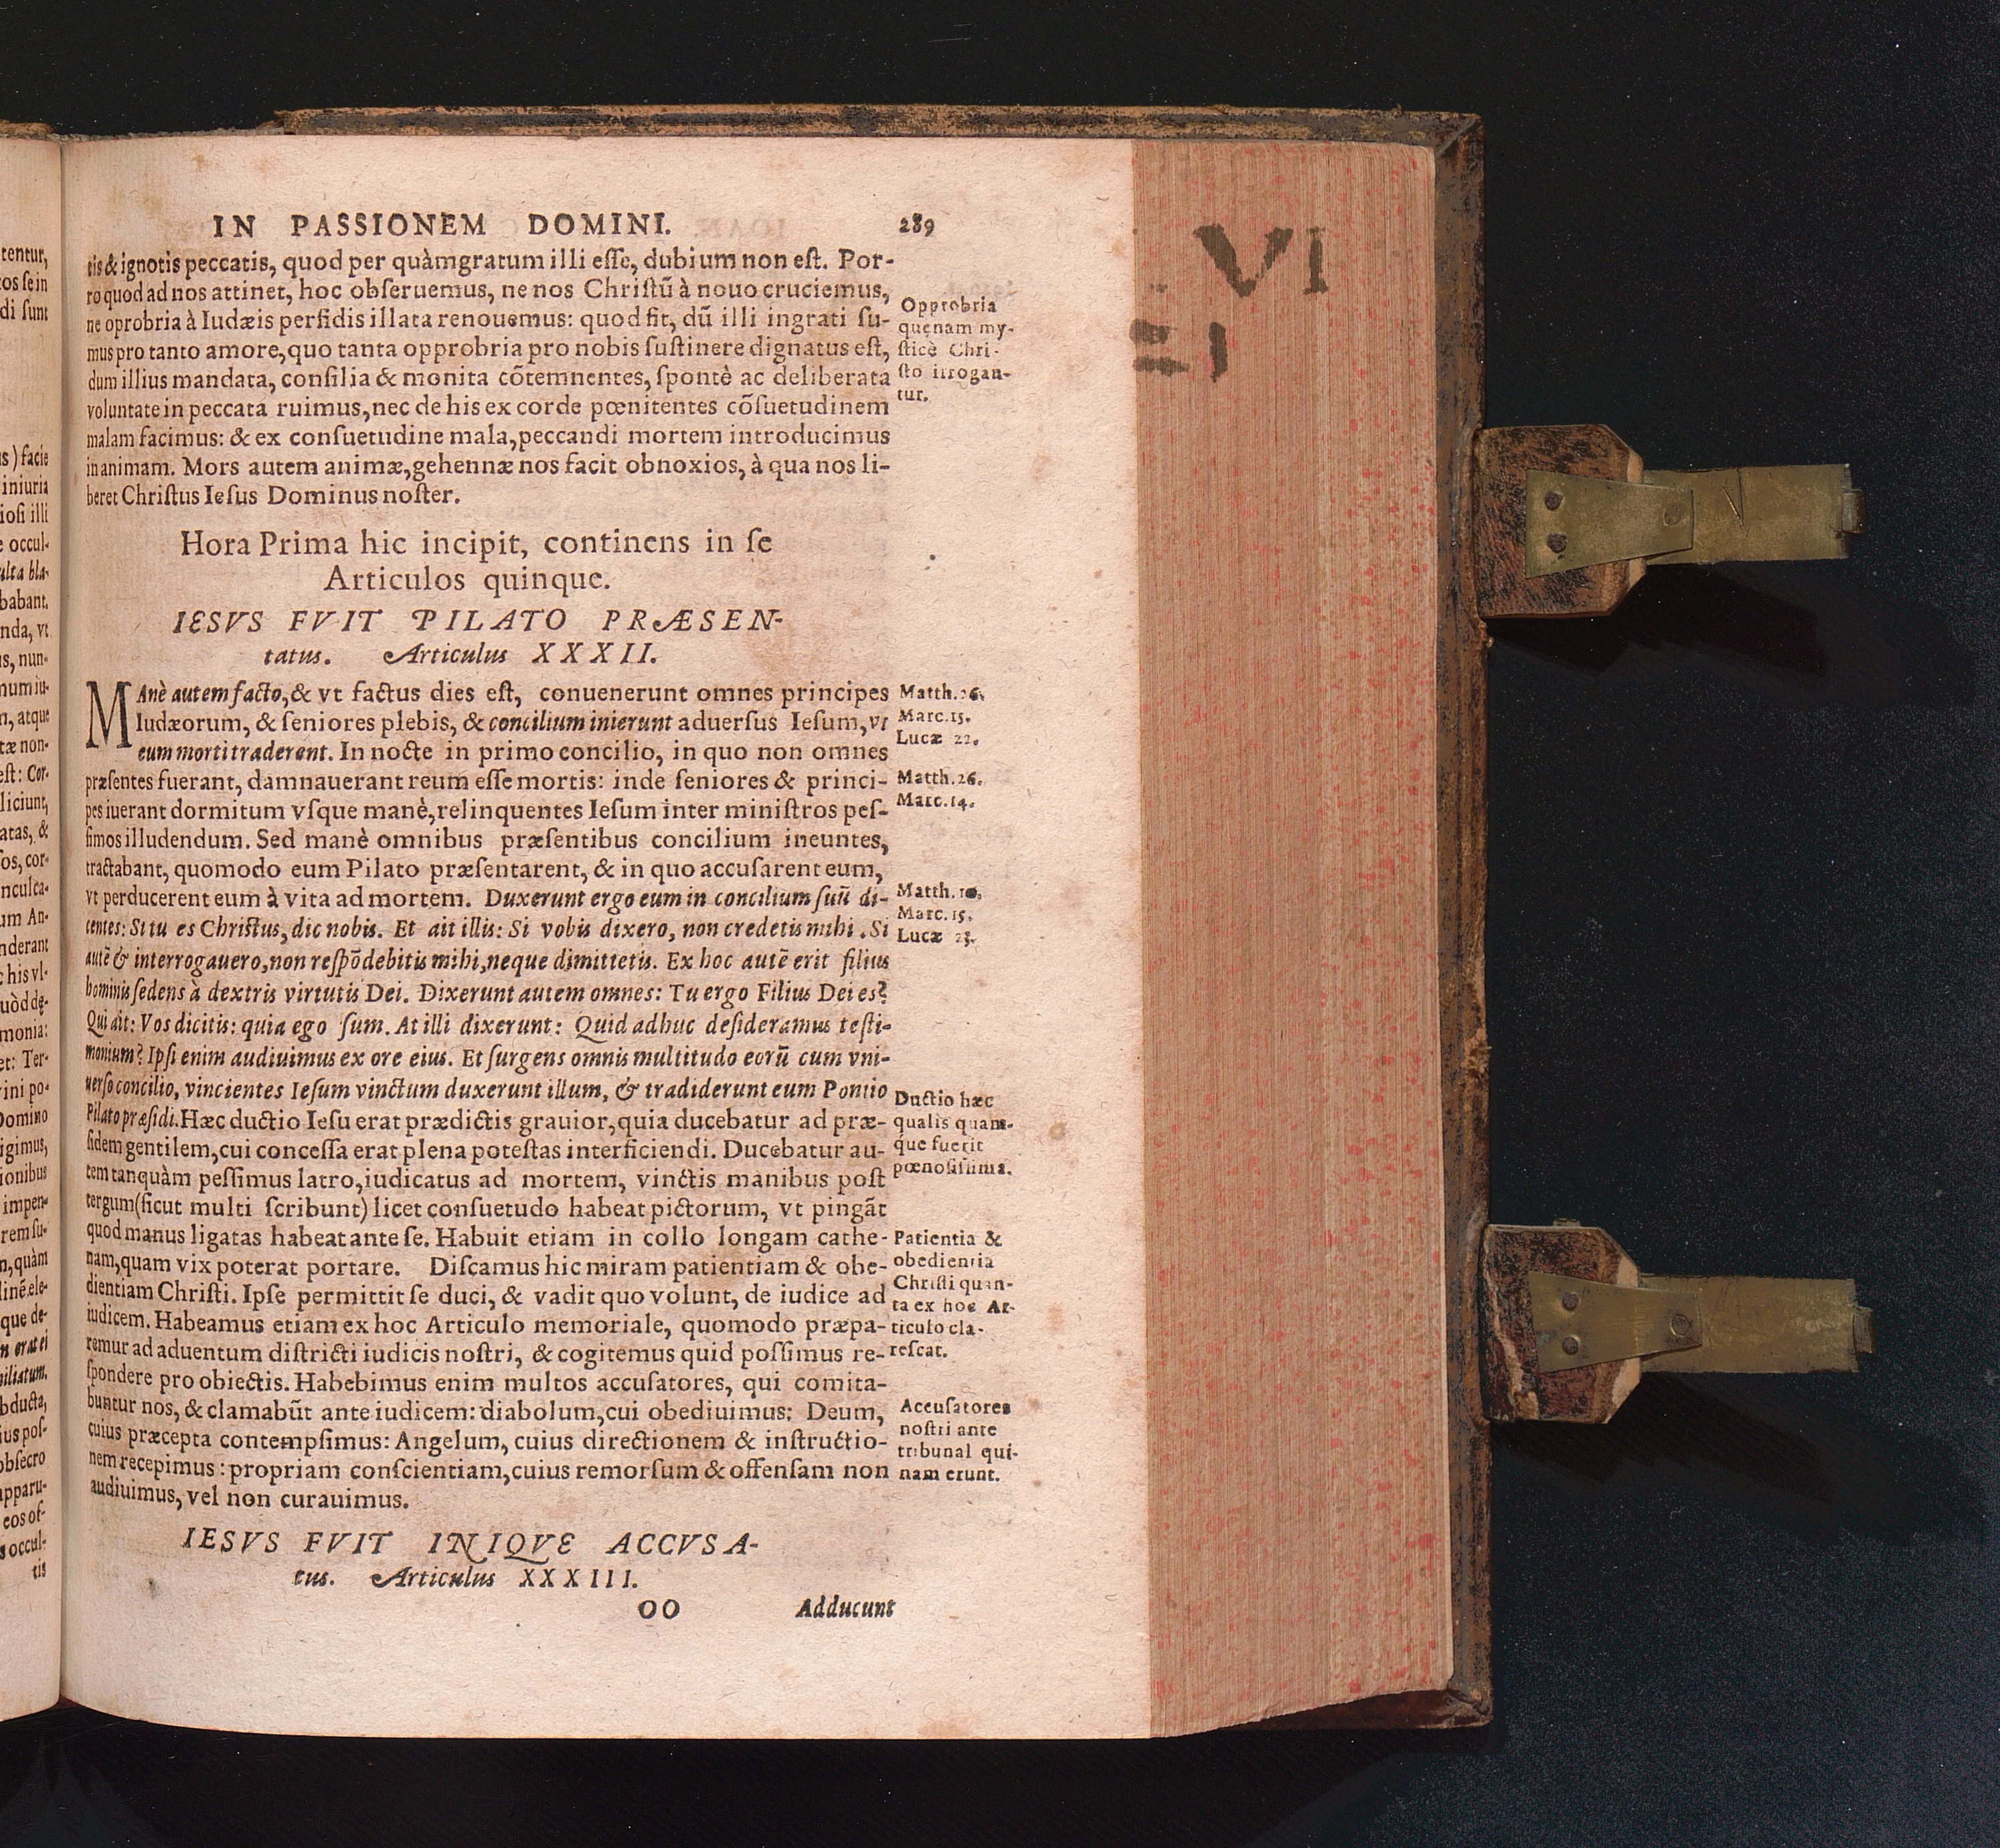 IN PASSIONEM DOMINI. 289
tis & ignotis peccatis, quod per quàmgratum illi eſſe, dubium non eſt. Por-
ro quod ad nos attinet, hoc obſeruemus, ne nos Chriſtũ à nouo cruciemus,
ne oprobria à Iudæis perfidis illata renouemus: quod fit, dũ illi ingrati ſu-
mus pro tanto amore, quo tanta opprobria pro nobis ſuſtinere dignatus eſt,
dum illius mandata, conſilia & monita cõtemnentes, ſpontè ac deliberata
voluntate in peccata ruimus, nec de his ex corde pœnitentes cõſuetudinem
malam facimus: & ex conſuetudine mala, peccandi mortem introducimus
in animam. Mors autem animæ, gehennæ nos facit obnoxios, à qua nos li-
beret Chriſtus Ieſus Dominus noſter.
Opprobria
quænam my-
ſticè Chri-
ſto irrogan-
tur.
Hora Prima hic incipit, continens in ſe
Articulos quinque.
IESVS FVIT PILATO PRÆSEN-
tatus. Articulus XXXII.
MAnè autem facto, & vt factus dies eſt, conuenerunt omnes principes
Iudæorum, & ſeniores plebis, & concilium inierunt aduerſus Ieſum, vt
eum morti traderent. In nocte in primo concilio, in quo non omnes
præſentes fuerant, damnauerant reum eſſe mortis: inde ſeniores & princi-
pes iuerant dormitum vſque manè, relinquentes Ieſum inter miniſtros peſ-
ſimos illudendum. Sed manè omnibus præſentibus concilium ineuntes,
tractabant, quomodo eum Pilato præſentarent, & in quo accuſarent eum,
vt perducerent eum à vita ad mortem. Duxerunt ergo eum in concilium ſuũ di-
centes: Si tu es Chriſtus, dic nobis. Et ait illis: Si vobis dixero, non credetis mihi. Si
autẽ & interrogauero, non reſpõdebitis mihi, neque dimittetis. Ex hoc autẽ erit filius
hominis ſedens à dextris virtutis Dei. Dixerunt autem omnes: Tu ergo Filius Dei es?
Qui ait: Vos dicitis: quia ego ſum. At illi dixerunt: Quid adhuc deſideramus teſti-
monium? Ipſi enim audiuimus ex ore eius. Et ſurgens omnis multitudo eorũ cum vni-
uerſo concilio, vincientes Ieſum vinctum duxerunt illum, & tradiderunt eum Pontio
Pilato præſidi. Hæc ductio Ieſu erat prædictis grauior, quia ducebatur ad præ-
ſidem gentilem, cui conceſſa erat plena poteſtas interficiendi. Ducebatur au-
tem tanquàm peſſimus latro, iudicatus ad mortem, vinctis manibus poſt
tergum (ſicut multi ſcribunt) licet conſuetudo habeat pictorum, vt pingãt
quod manus ligatas habeat ante ſe. Habuit etiam in collo longam cathe-
nam, quam vix poterat portare. Diſcamus hic miram patientiam & obe-
dientiam Chriſti. Ipſe permittit ſe duci, & vadit quo volunt, de iudice ad
iudicem. Habeamus etiam ex hoc Articulo memoriale, quomodo præpa-
remur ad aduentum diſtricti iudicis noſtri, & cogitemus quid poſſimus re-
ſpondere pro obiectis. Habebimus enim multos accuſatores, qui comita-
buntur nos, & clamabũt ante iudicem: diabolum, cui obediuimus: Deum,
cuius præcepta contempſimus: Angelum, cuius directionem & inſtructio-
nem recepimus: propriam conſcientiam, cuius remorſum & offenſam non
audiuimus, vel non curauimus.
Matth. 26.
Marc. 15.
Lucæ 22.
Matth. 26.
Marc. 14.
Matth.
Marc. 15.
Lucæ 23.
Ductio hæc
qualis quam-
q́ue fuerit
pœnoſiſſima.
Patientia &
obedientia
Chriſti quan-
ta ex hoc Ar-
ticulo cla-
reſcat.
Accuſatores
noſtri ante
tribunal qui-
nam erunt.
IESVS FVIT INIQVE ACCVSA-
tus. Articulus XXXIII.
OO Adducunt
VI